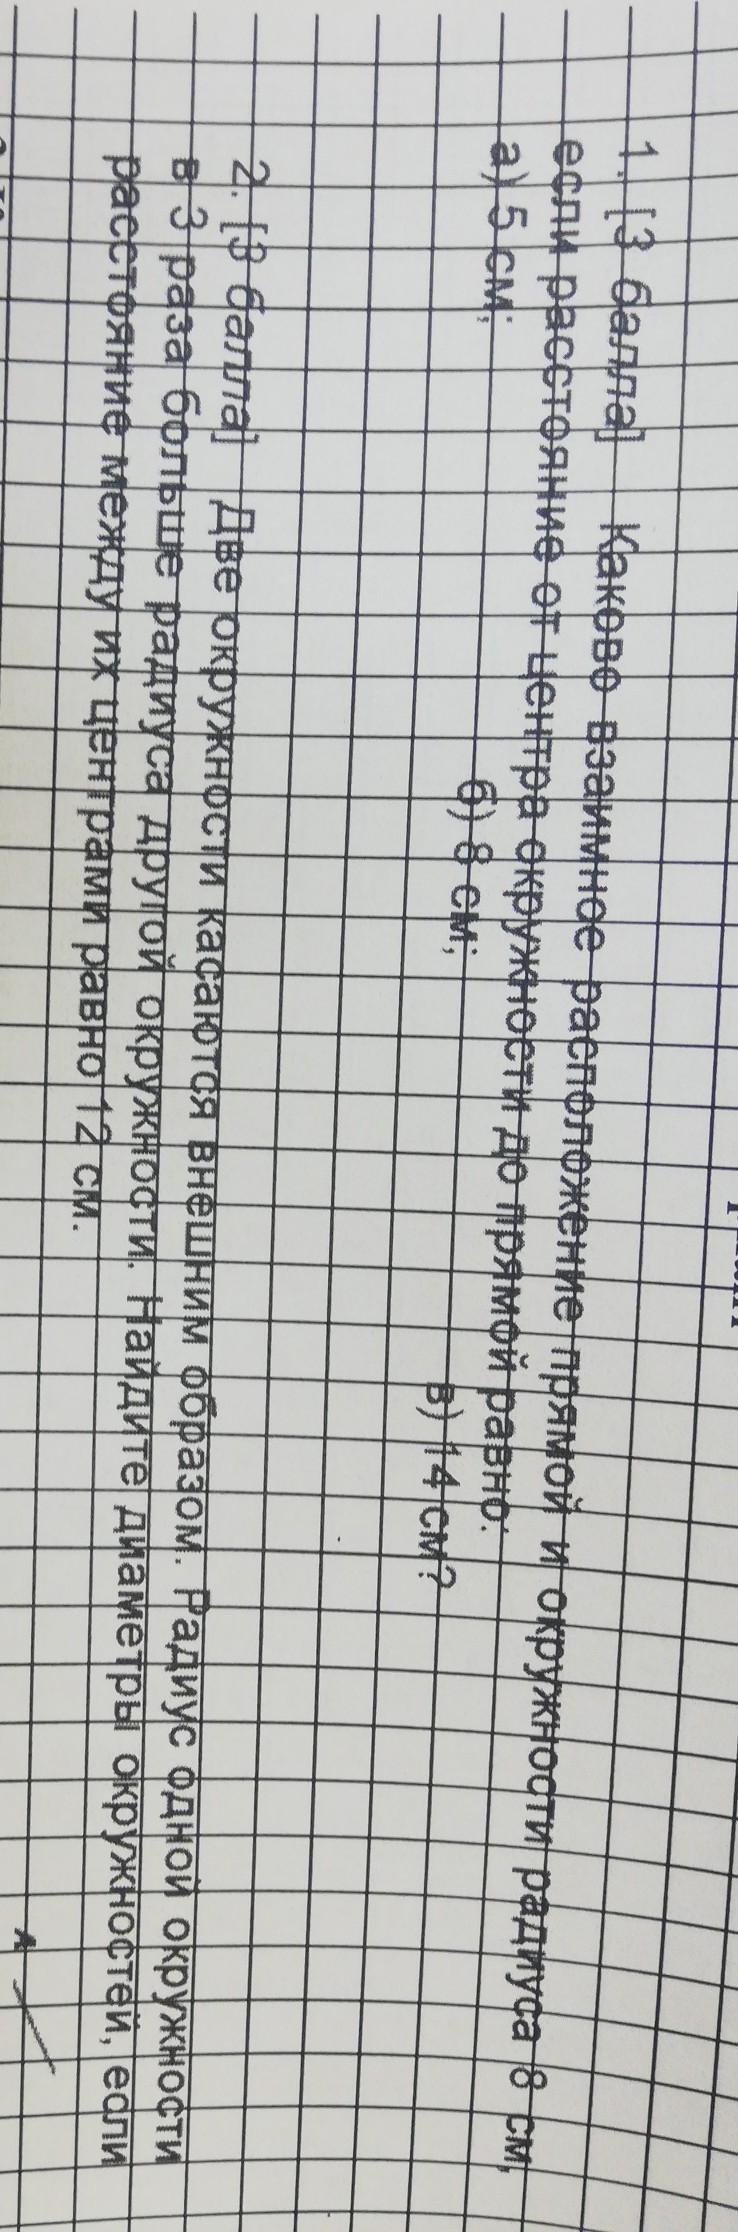 1. [3 балла] Каково взаимное расположение прямой и окружности радиуса 8 см,
если расстояние от центра окружности до прямой равно:
а) 5 см; б) 8 см; в) 14 см?
2. [3 балла] Две окружности касаются внешним образом. Радиус одной окружности
в 3 раза больше радиуса другой окружности. Найдите диаметры окружностей, если
расстояние между их центрами равно 12 см.